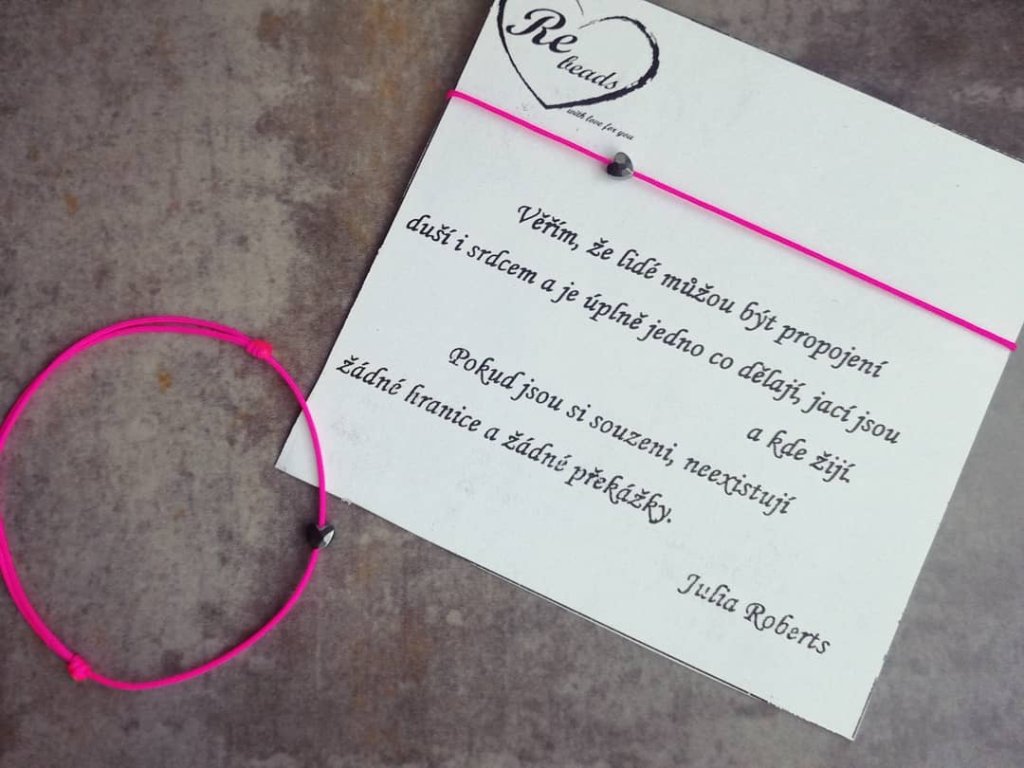 Re
beads
with love for you
Věřím, že lidé můžou být propojení
duší i srdcem a je úplně jedno co dělají, jací jsou
a kde žijí.
Pokud jsou si souzeni, neexistují
žádné hranice a žádné překážky.
Julia Roberts